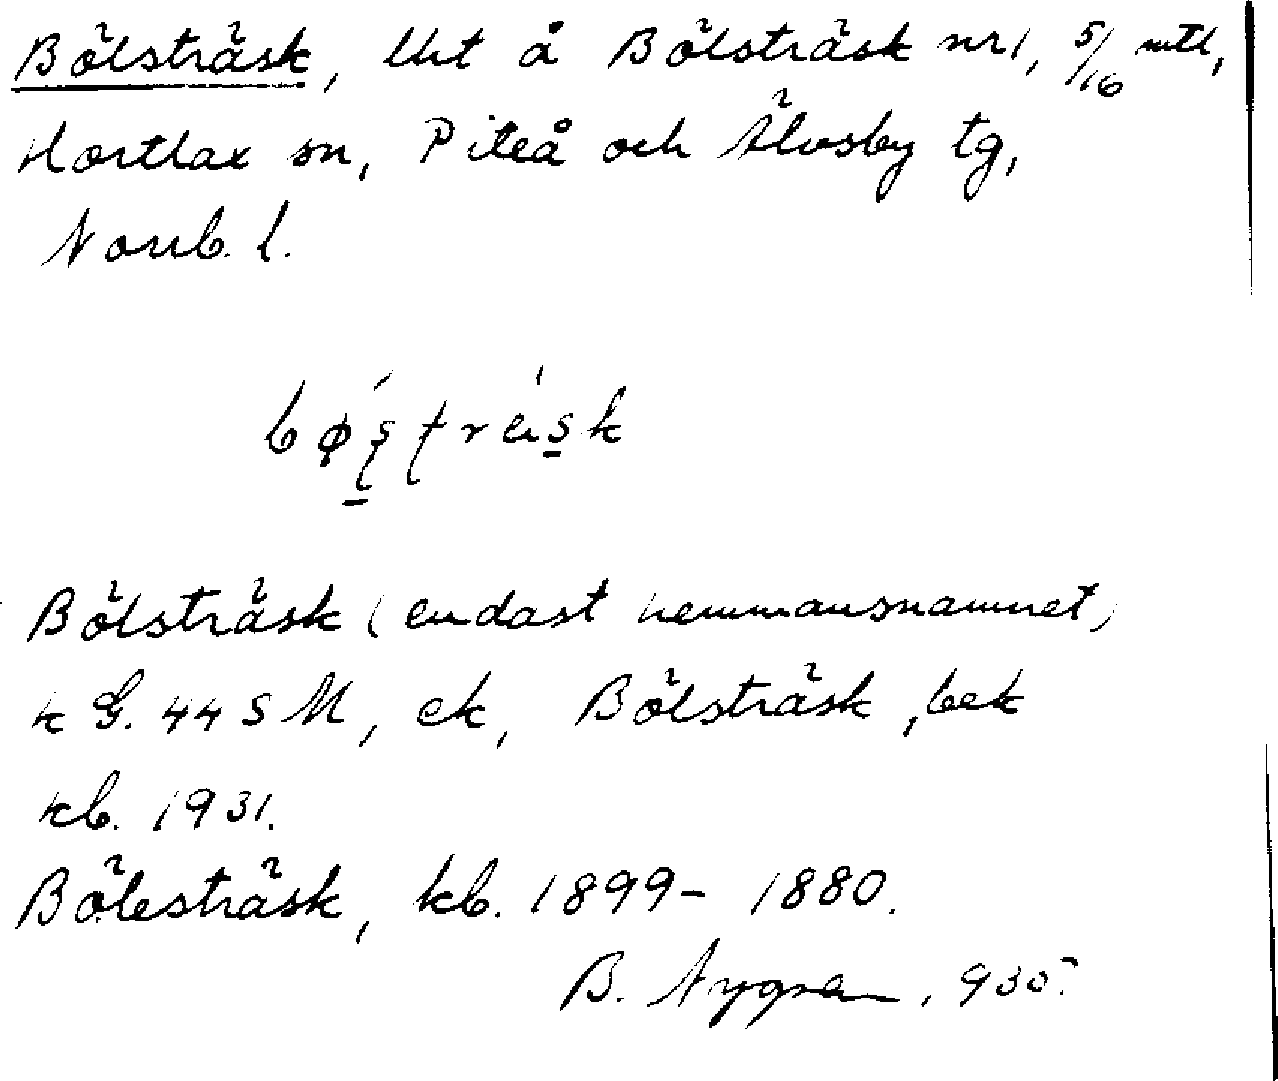 Bölsträsk, Ut å Bölsträsk nr 1, 5/16 mtl,
Hortlax sn, Piteå och Älvsby tg,
Norrb. l.
Bölsträsk (endast hemmansnamnet)
k G. 44 S M, ek, Bölsträsk, bek
kb. 1931.
Bölesträsk, kb. 1899 - 1880.
B. Nygren, 1935